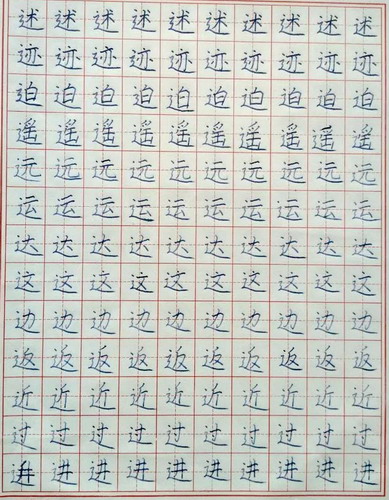 述述述述述述述述述述
迹迹迹迹迹迹迹迹迹迹
迫迫迫迫迫迫迫迫迫迫
遥遥遥遥遥遥遥遥遥遥
远远远远远远远远远远
运运运运运运运运运运
达达达达达达达达达达
这这这这这这这这这这
边边边边边边边边边边
返返返返返返返返返返
近近近近近近近近近近
过过过过过过过过过过
进进进进进进进进进进